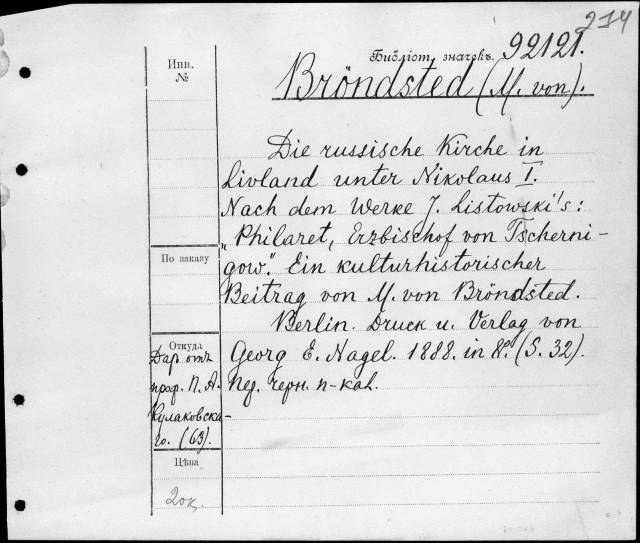 214
Инв.
№
Библіот. значекъ. 92121.
Bröndsted (M. von).
Die russische Kirche in
Livland unter Nikolaus I.
Nach dem Werke J. Listowski's:
„Philaret, Erzbischof von Tscherni-
gow." Ein kulturhistorischer
Beitrag von M. von Bröndsted.
Berlin. Druck u. Verlag von
Georg E. Nagel. 1888. in 8º. (S. 32).
пер. черн. п-кал.
По заказу
Откуда
Дар. отъ
проф. П. А.
Кулаковска-
го. (63).
Цѣна
20к.